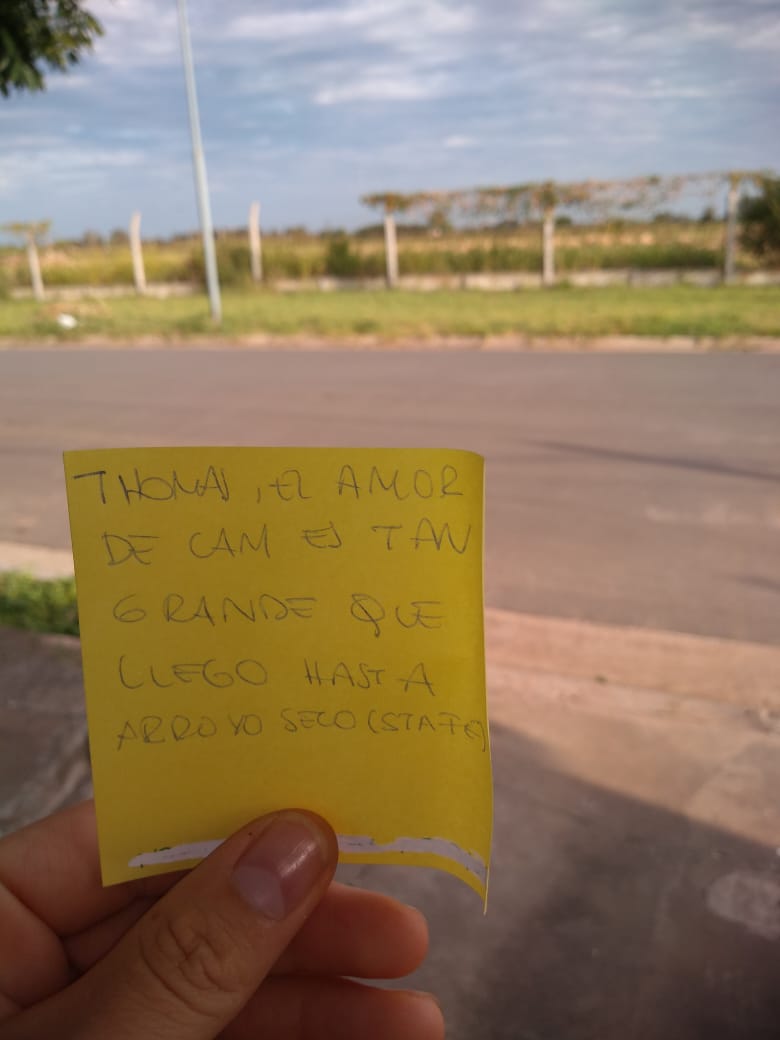 THOMAS, EL AMOR
DE CAM ES TAN
GRANDE QUE
LLEGO HASTA
ARROYO SECO (STA FE)